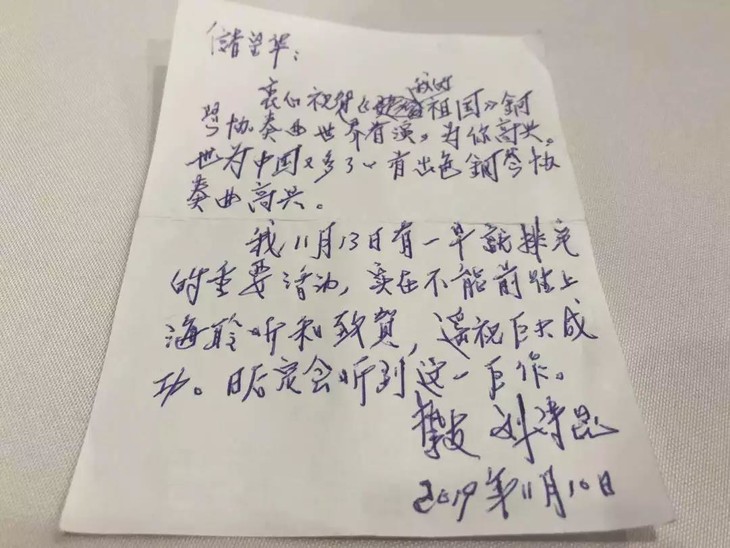 储望华：
衷心祝贺《我的祖国》鋼
琴协奏曲世界首演，为你高兴。
也为中国又多了一首出色鋼琴协
奏曲高兴。
我11月13日有一早就排定
的重要活动，实在不能前往上
海聆听和致賀，遥祝巨大成
功。日后定会听到这一巨作。
挚友 刘诗昆
2019年11月10日